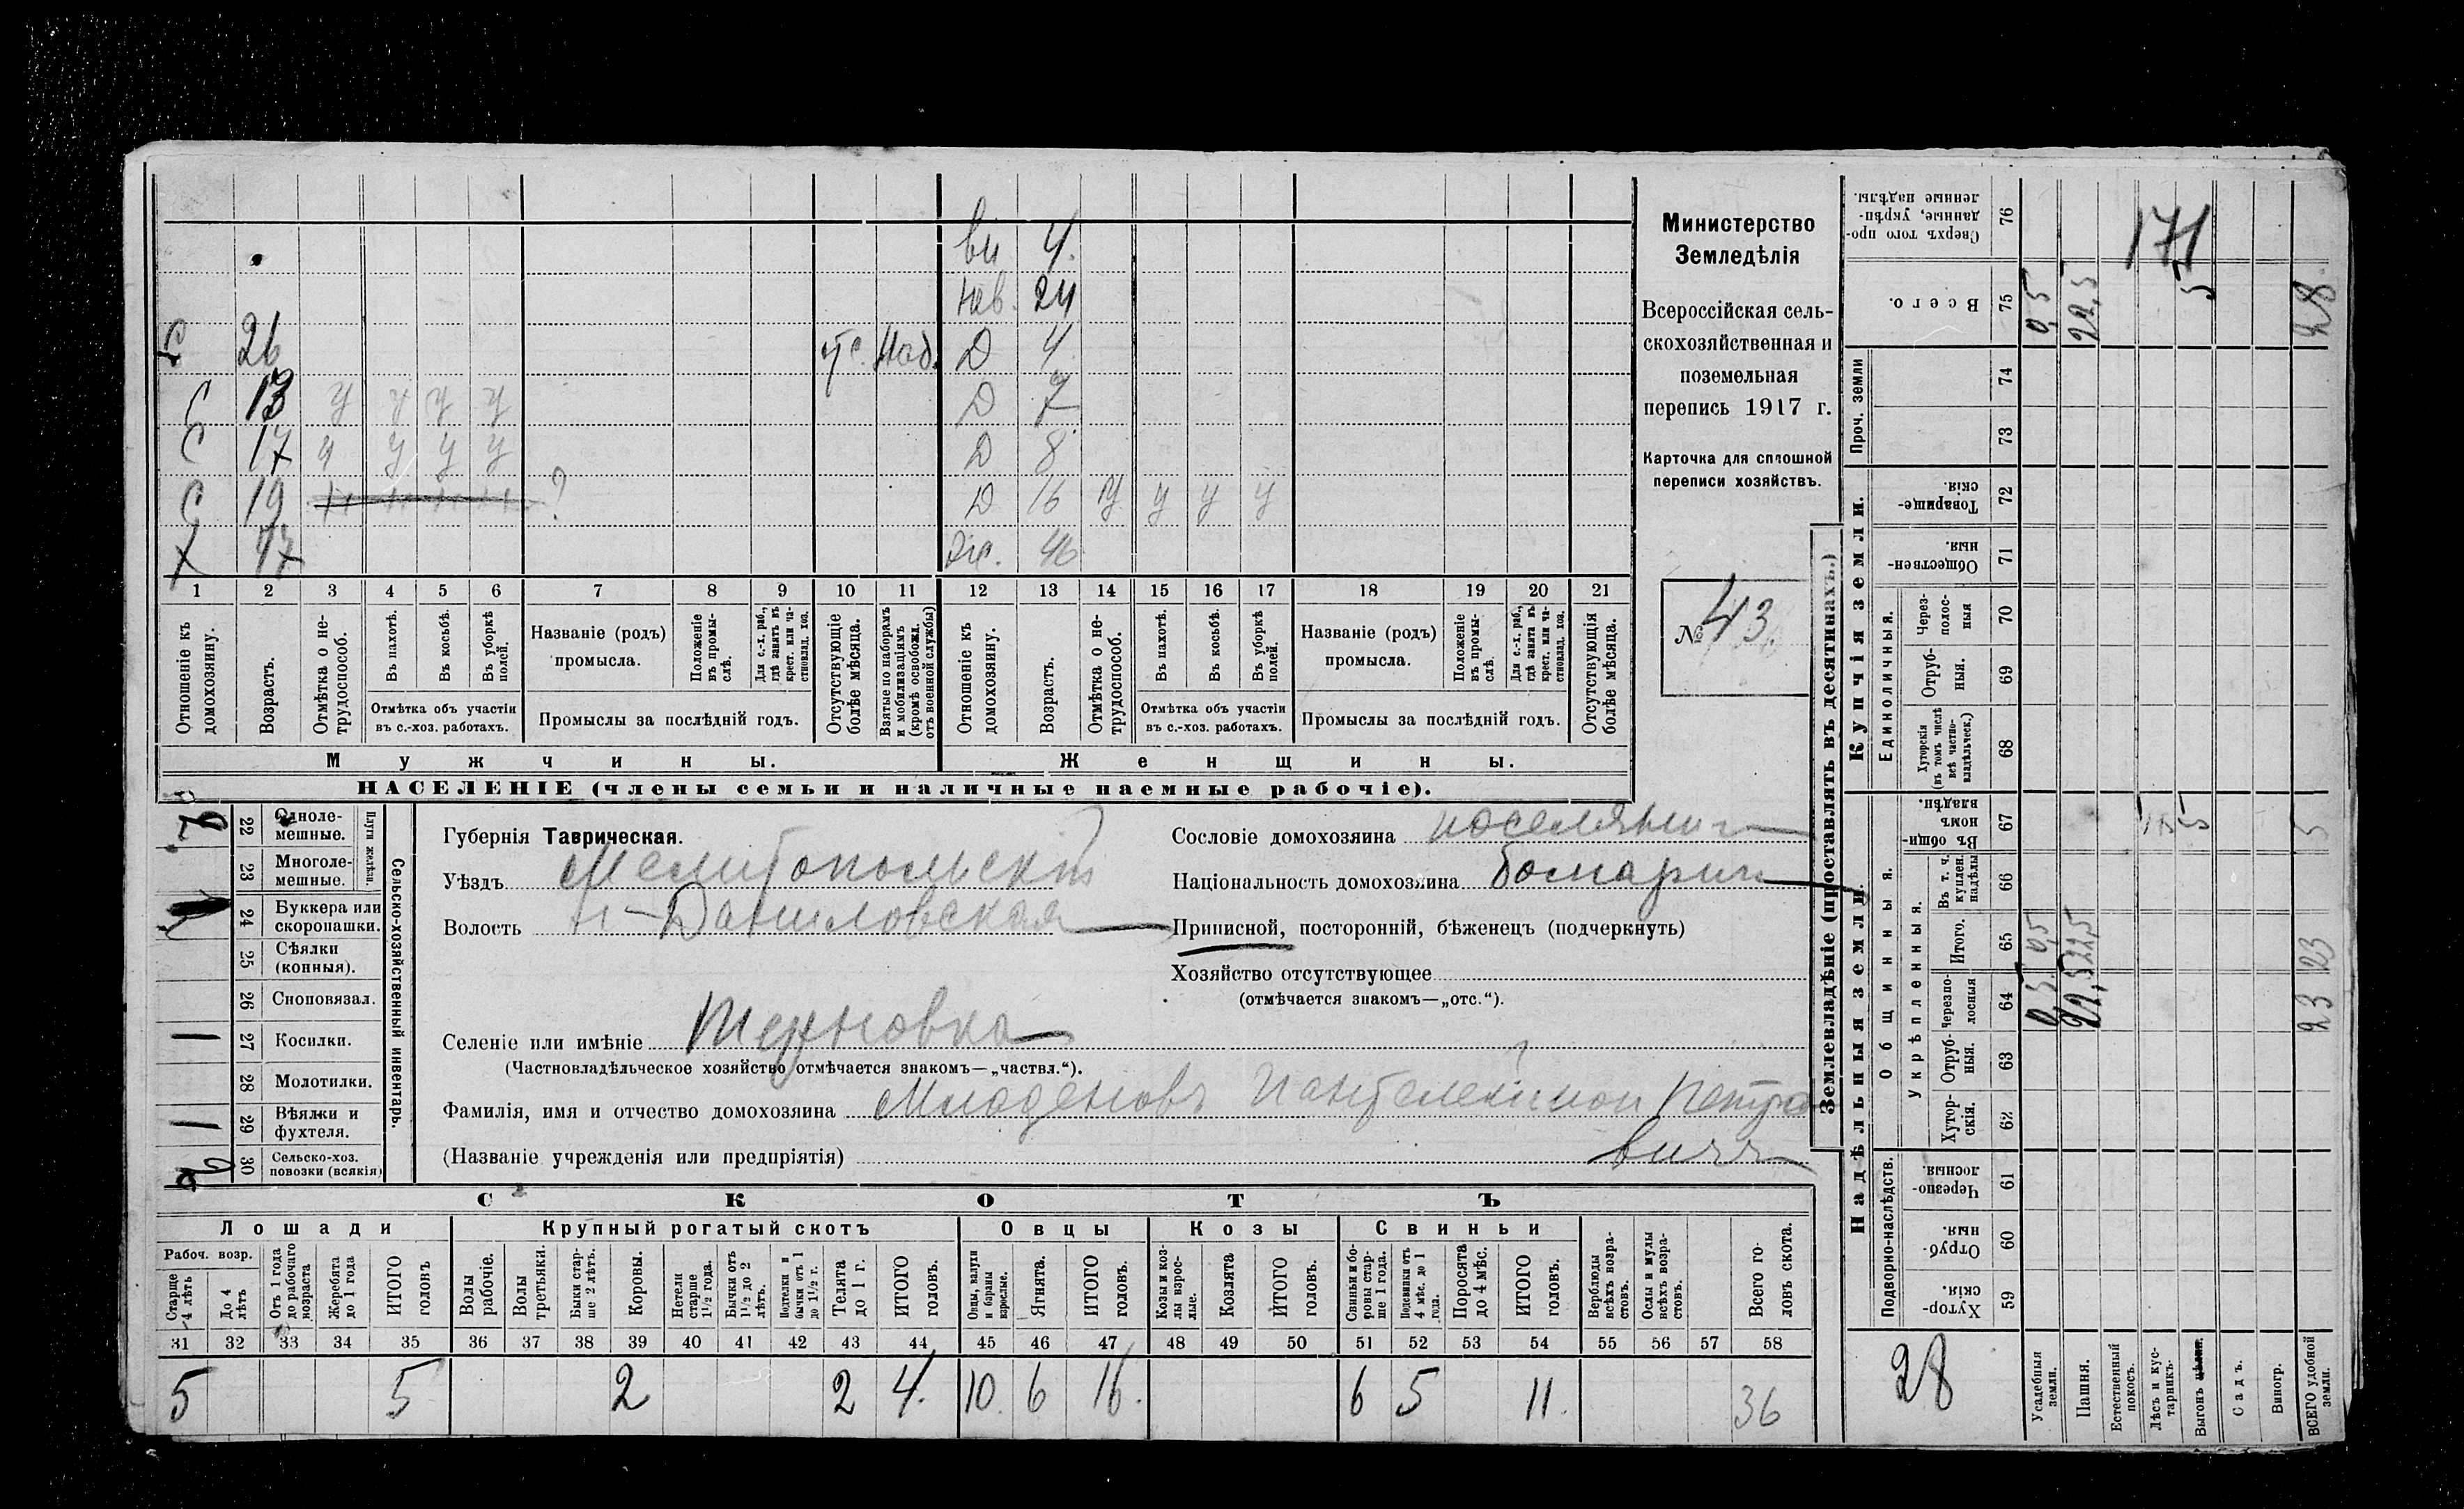 ви 4.
нев. 24
С 26 отс. Моб. Д 4
С 13 у у у у Д 7
С 17 у у у у Д 8
С 19 ? Д 16 у у у у
Х 47 46
1 2 3 4 5 6 7 8 9 10 11 12 13 14 15 16 17 18 19 20 21
Отношеніе къ домохозяину.
Возрастъ.
Отмѣтка о не-трудоспособ.
Въ пахотѣ.
Въ косьбѣ.
Въ уборкѣ полей.
Отмѣтка объ участіи въ с.-хоз. работахъ.
Названіе (родъ) промысла.
Положеніе въ промы-слѣ.
Для с.-х. раб., гдѣ занятъ въ крест. или ча-стновлад. хоз.
Промыслы за послѣдній годъ.
Отсутствующіе болѣе мѣсяца.
Взятые по наборамъ и мобилизаціямъ (кромѣ освобожд. отъ военной службы)
Отношеніе къ домохозяину.
Возрастъ.
Отмѣтка о не-трудоспособ.
Въ пахотѣ.
Въ косьбѣ.
Въ уборкѣ полей.
Отмѣтка объ участіи въ с.-хоз. работахъ.
Названіе (родъ) промысла.
Положеніе въ промы-слѣ.
Для с.-х. раб., гдѣ занята въ крест. или ча-стновлад. хоз.
Промыслы за послѣдній годъ.
Отсутствующія болѣе мѣсяца.
Мужчины. Женщины.
НАСЕЛЕНІЕ (члены семьи и наличные наемные рабочіе).
Министерство
Земледѣлія
Всероссійская сель-
скохозяйственная и
поземельная
перепись 1917 г.
Карточка для сплошной
переписи хозяйствъ.
№ 43.
Сельско-хозяйственный инвентарь.
Плуги желѣзн.
22 Одноле-мешные.
23 Многоле-мешные.
24 Буккера или скоропашки.
25 Сѣялки (конныя).
26 Сноповязал.
1 27 Косилки.
28 Молотилки.
1 29 Вѣялки и фухтеля.
2 30 Сельско-хоз. повозки (всякія)
Губернія Таврическая.
Уѣздъ Мелитопольскій
Волость Н-Даниловская
Селеніе или имѣніе Терновка
(Частновладѣльческое хозяйство отмѣчается знакомъ—„частвл.“).
Фамилія, имя и отчество домохозяина Младеновъ Пантелеймон Петро
(Названіе учрежденія или предпріятія) вичъ
Сословіе домохозяина поселянин
Національность домохозяина болгарин
Приписной, посторонній, бѣженецъ (подчеркнуть)
Хозяйство отсутствующее
(отмѣчается знакомъ—„отс.“).
СКОТЪ
Лошади Крупный рогатый скотъ Овцы Козы Свиньи
Рабоч. возр.
Старше 4 лѣтъ
До 4 лѣтъ
Отъ 1 года до рабочаго возраста
Жеребята до 1 года
ИТОГО головъ
Волы рабочіе.
Волы третьяки.
Быки стар-ше 2 лѣтъ.
Коровы.
Нетели старше 1½ года.
Бычки отъ 1½ до 2 лѣтъ.
Подтелки и бычки отъ 1 до 1½ г.
Телята до 1 г.
ИТОГО головъ.
Овцы, валухи и бараны взрослые.
Ягнята.
ИТОГО головъ.
Козы и коз-лы взрос-лые.
Козлята
ИТОГО головъ.
Свиньи и бо-ровы стар-ше 1 года.
Подсвинки отъ 4 мѣс. до 1 года.
Поросята до 4 мѣс.
ИТОГО головъ.
Верблюды всѣхъ возра-стовъ.
Ослы и мулы всѣхъ возра-стовъ.
Всего го-ловъ скота.
31 32 33 34 35 36 37 38 39 40 41 42 43 44 45 46 47 48 49 50 51 52 53 54 55 56 57 58
5 5 2 2 4. 10. 6 16. 6 5 11. 36
Землевладѣніе (проставлять въ десятинахъ.)
Надѣльныя земли. Купчія земли. Проч. земли
Подворно-наслѣдств. Общинныя. Укрѣпленныя. Единоличныя.
Сверхъ того про-данные, укрѣп-ленные надѣлы. 76 171
Всего. 75 0,5 22,5 5 28.
74
73
Товарище-скія. 72
Обществен-ныя. 71
Через-полос-ныя 70
Отруб-ныя. 69
Хуторскія (въ томъ числѣ всѣ частно-владѣльческ.) 68
Въ общин-номъ владѣн. 67 5 5
Въ т. ч. куплен. надѣлы 66
Итого. 65 0,5 22,5 23
Черезпо-лосныя 64 0,5 22,5 23
Отруб-ныя. 63
Хутор-скія. 62
Черезпо-лосныя. 61
Отруб-ныя. 60
Хутор-скія. 59
28
Усадебныя земли.
Пашня.
Естественный покосъ.
Лѣсъ и кус-тарникъ.
Выгонъ
Садъ.
Виногр.
ВСЕГО удобной земли.